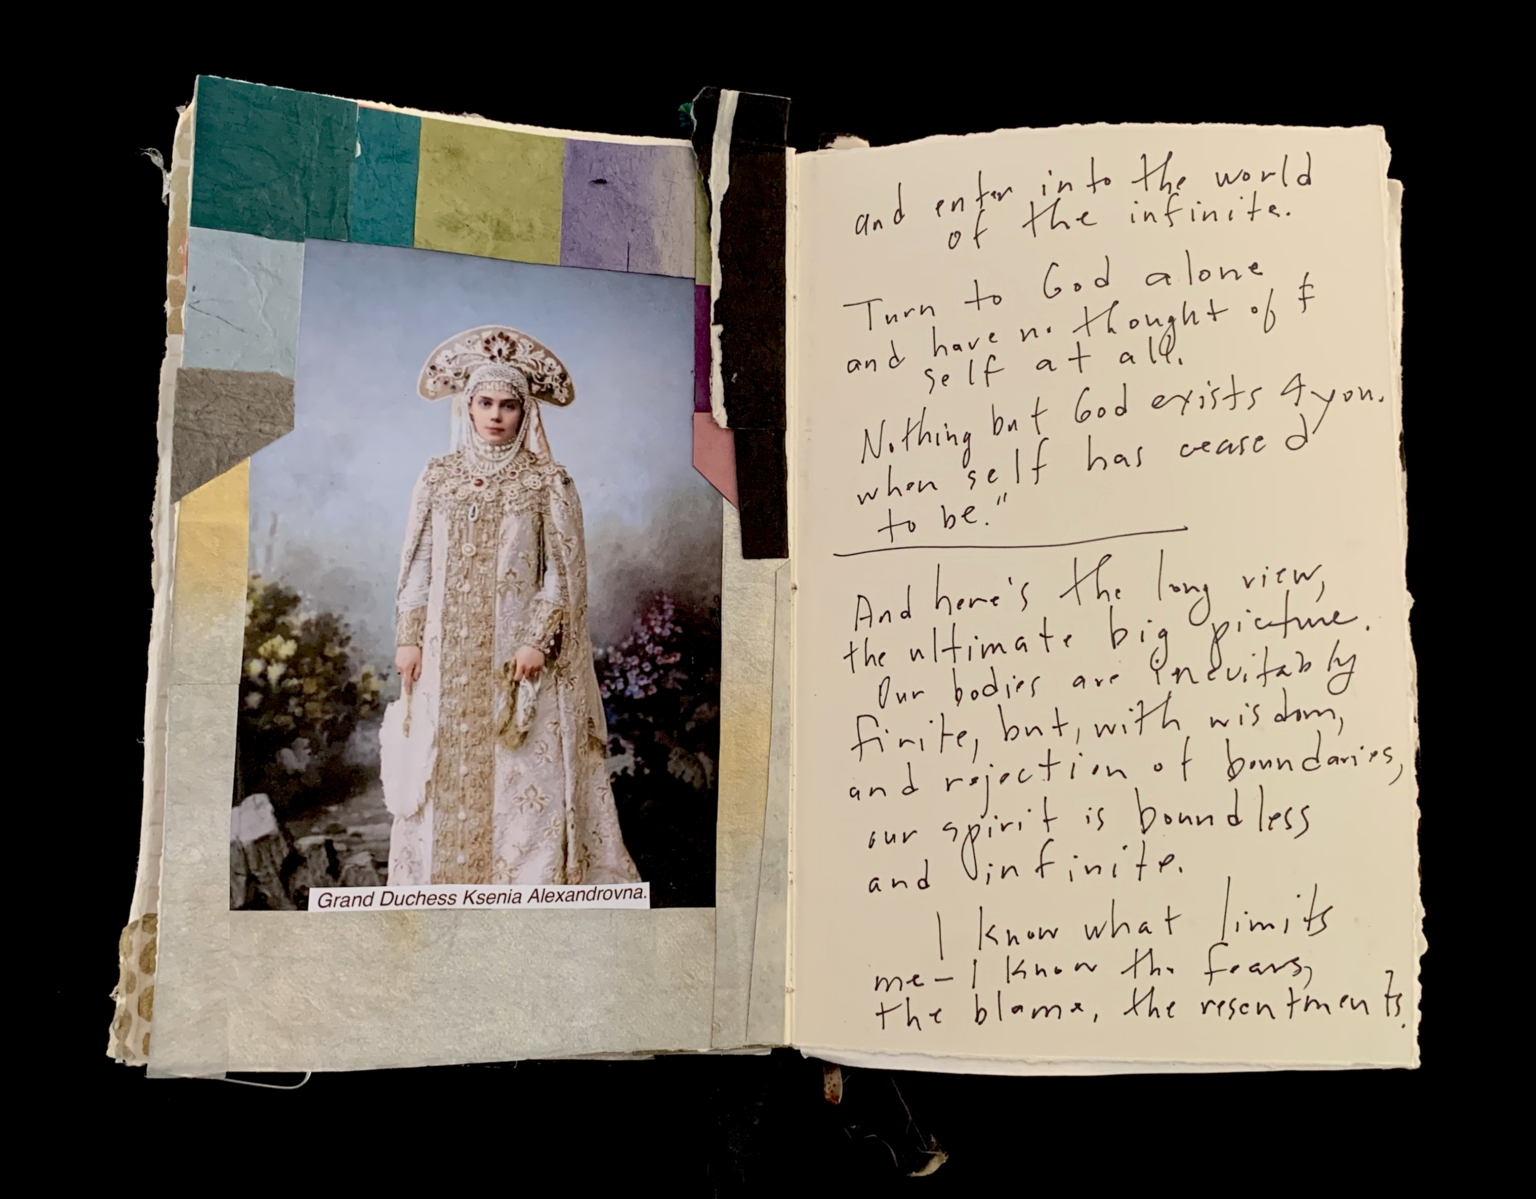 Grand Duchess Ksenia Alexandrovna.
and enter into the world
of the infinite.
Turn to God alone
and have no thought of
self at all.
Nothing but God exists 4 you.
when self has ceased
to be."
And here's the long view,
the ultimate big picture.
Our bodies are inevitably
finite, but, with wisdom,
and rejection of boundaries,
our spirit is boundless
and infinite.
I know what limits
me – I know the fears,
the blame, the resentments.